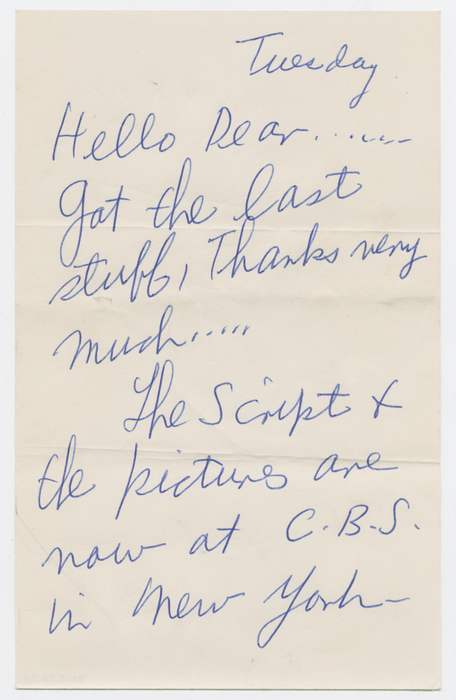 Tuesday
Hello Dear.......
Got the last
stuff, Thanks very
much.....
The Script &
the pictures are
now at C.B.S.
in New York-